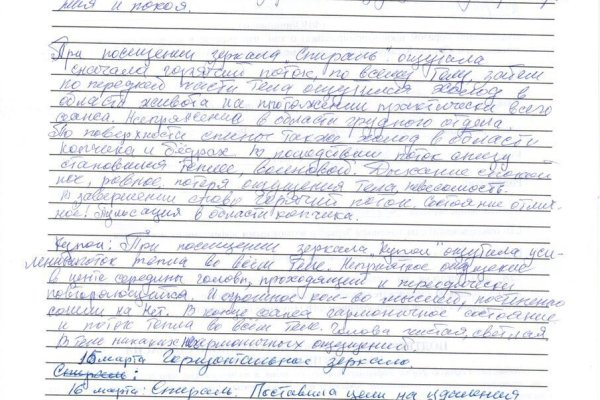 ния и покоя.
При посещении зеркала "Спираль" ощутила
сначала горячий поток, по всему телу, затем
по передней части тела ощущался холод в
области живота на протяжении практически всего
сеанса. Напряжение в области грудного отдела.
По поверхности спины также холод в области
копчика и бёдрах. В последствии поток снизу
становился теплее, волновой. Дыхание спокой
ное, ровное, потеря ощущения тела, невесомость.
В завершении снова горячий поток. Состояние отлич-
ное. Пульсация в области копчика.
Купол: При посещении зеркала "Купол" ощутила уси-
ление поток тепла во всём теле. Неприятное ощущение
в центре середины головы, проходящий и периодически
повторяющийся. И огромное кол-во мыслей, постепенно
сошли на нет. В конце сеанса гармоничное состояние
и поток тепла во всём теле. Голова чистая, светлая.
В теле никаких негармоничных ощущений.
15 марта Горизонтальное зеркало.
Спираль:
16 марта: Спираль. Поставила цели на удаления